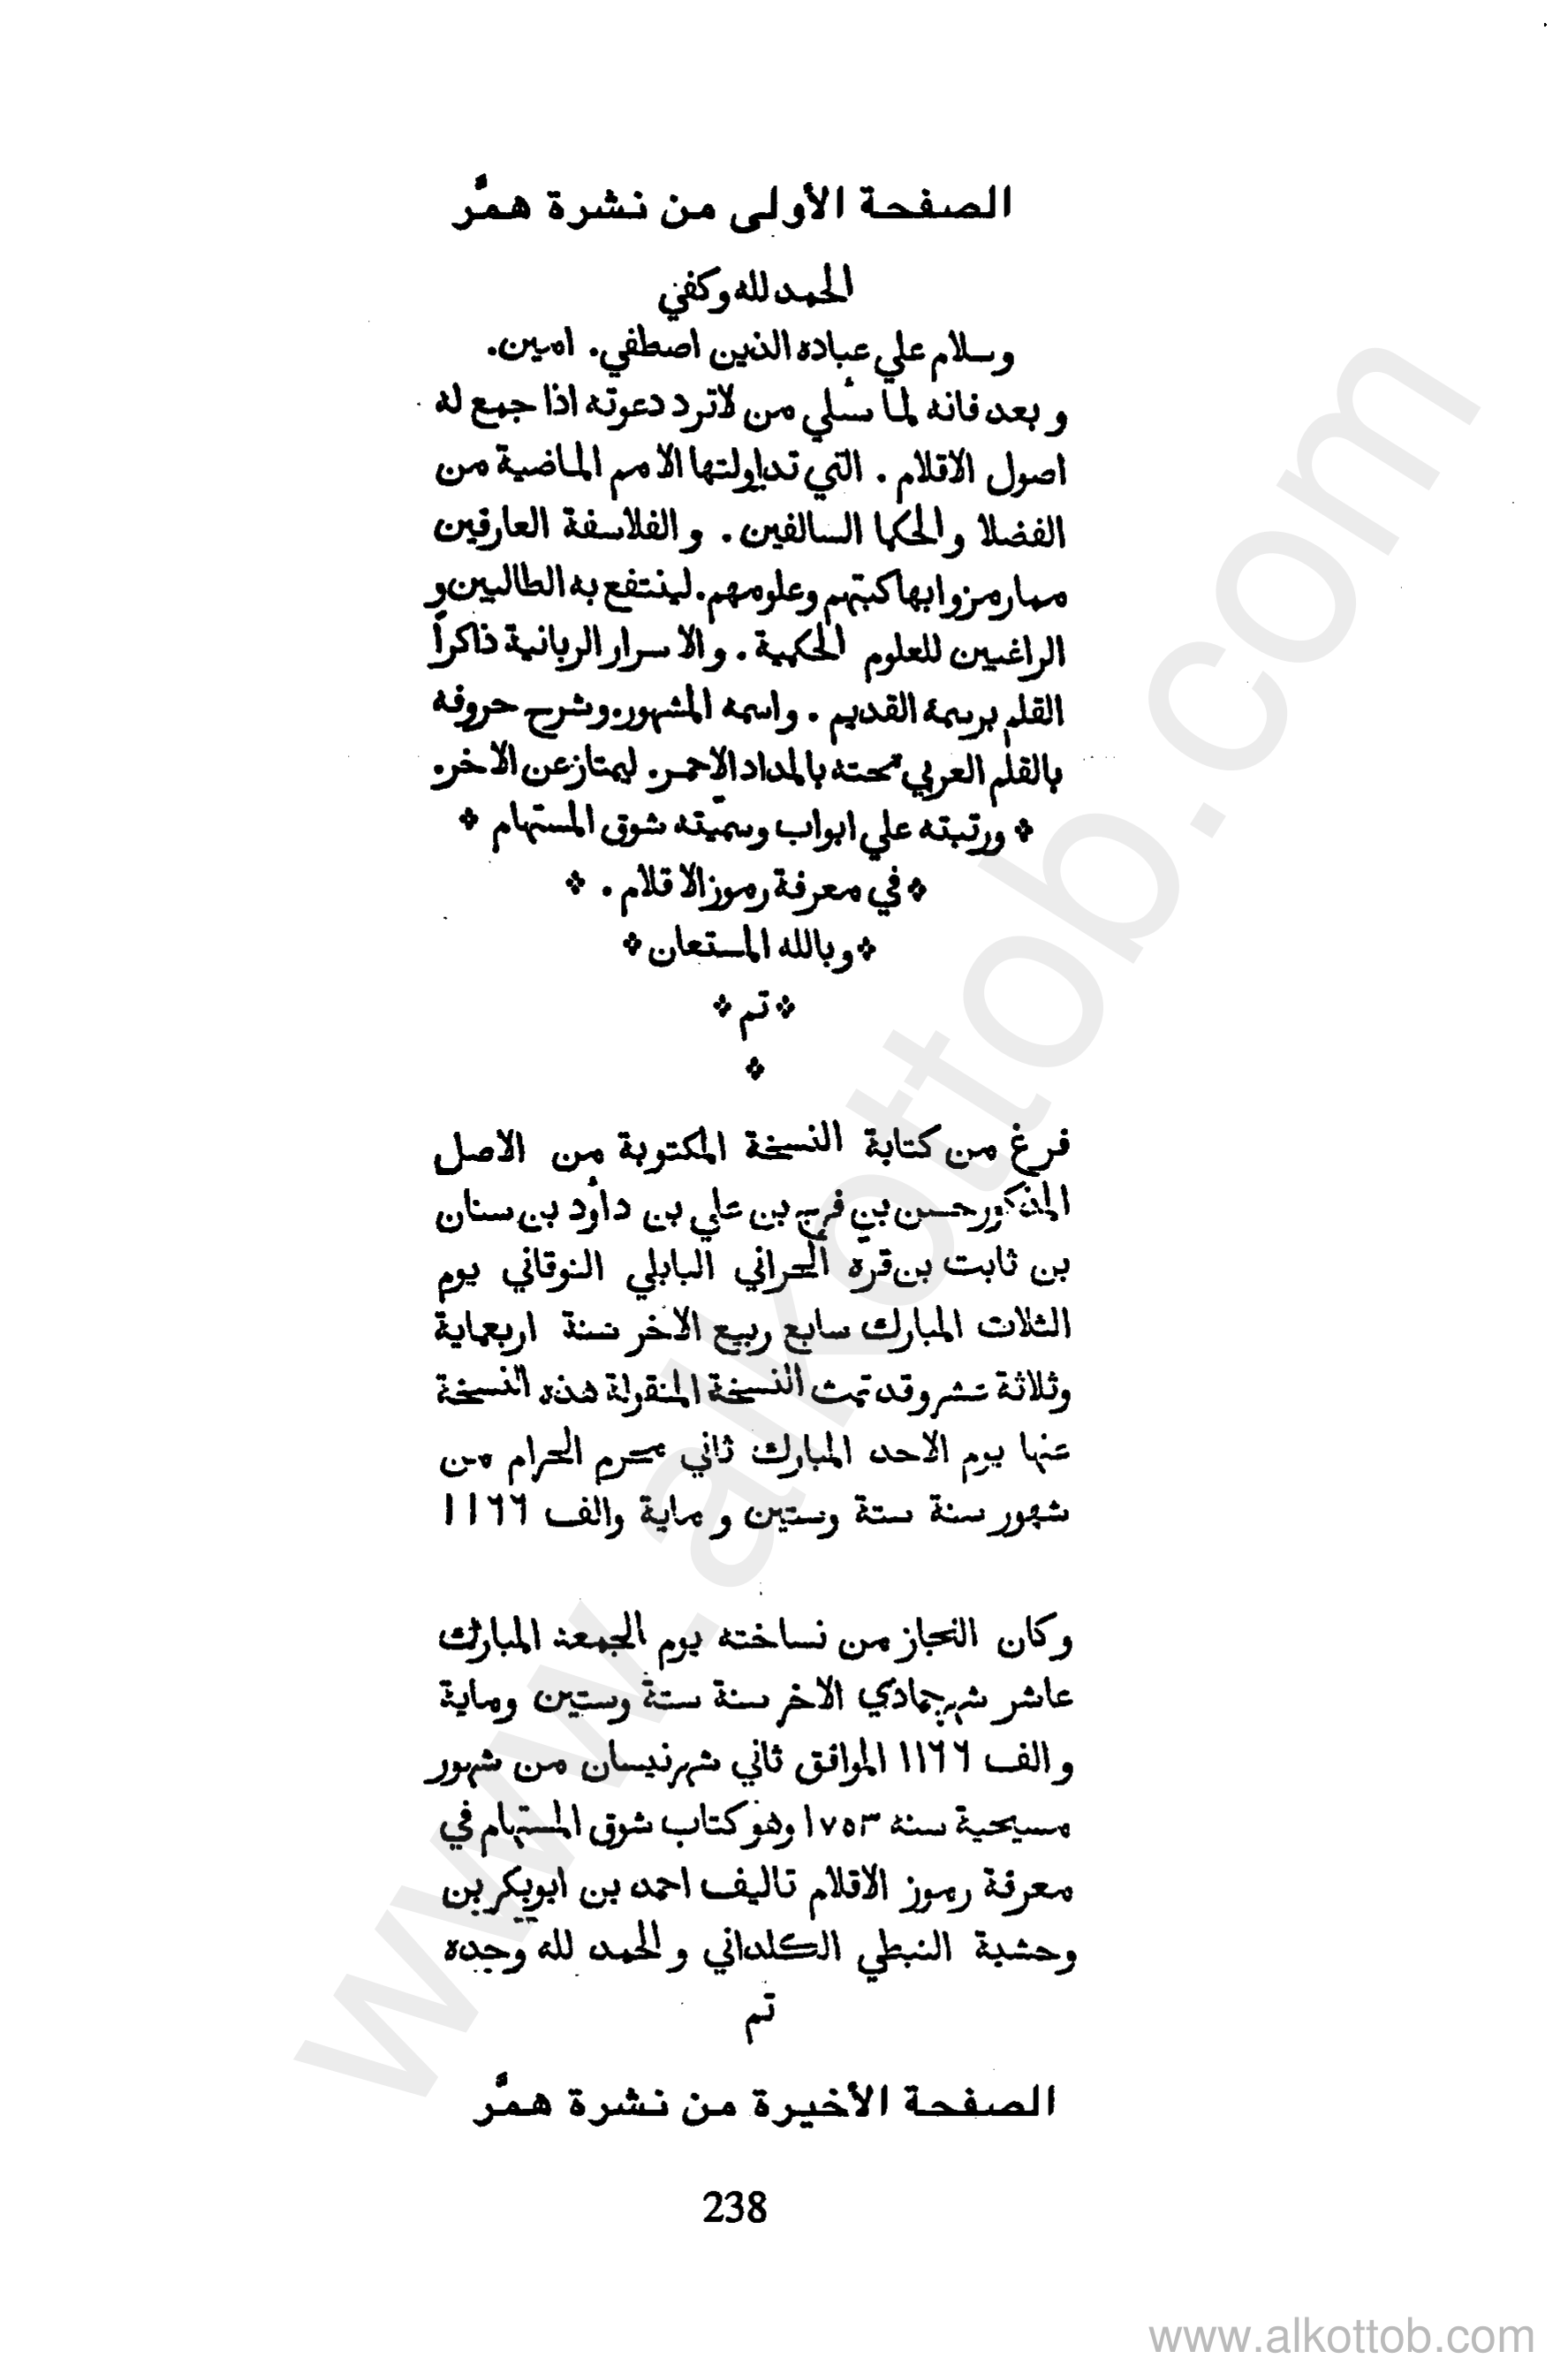 الصفحة الأولى من نشرة همَّر
الحمد لله وكفي
وسلام علي عباده الذين اصطفي. امين.
وبعد فانه لما سئلي من لاترد دعوته اذا جمع له
اصول الاقلام . التي تداولتها الامم الماضية من
الفضلا والحكما السالفين . والفلاسفة العارفين
ممارمزوا بها كبتهم وعلومهم. لينتفع به الطالبين و
الراغبين للعلوم الحكمية . والاسرار الربانية ذاكراً
القلم برسمة القديم . واسمه المشهور. وشرح حروفه
بالقلم العربي تحته بالمداد الاحمر. ليمتازعن الاخر.
* ورتبته علي ابواب وسميّته شوق المستهام *
* في معرفة رموزالاقلام . *
* وبالله المستعان *
* تم *
*
فرغ من كتابة النسخة المكتوبة من الاصل
المذكور حسن بن فرج بن علي بن داؤد بن سنان
بن ثابت بن قره الحراني البابلي النوقاني يوم
الثلات المبارك سابع ربيع الاخر سنة اربعماية
وثلاثة عشر وقد تمت النسخة المنقولة هذه النسخة
عنها يوم الاحد المبارك ثاني محرم الحرام من
شهور سنة ستة وستين و ماية والف ١١٦٦
وكان النجاز من نساخته يوم الجمعة المبارك
عاشر شهرجمادي الاخر سنة ستة وستين وماية
والف ١١٦٦ الموافق ثاني شهرنيسان من شهور
مسيحية سنه ١٧٥٣ وهو كتاب شوق المستهام في
معرفة رموز الاقلام تاليف احمد بن ابوبكر بن
وحشية النبطي الكلداني والحمد لله وحده
تم
الصفحة الأخيرة من نشرة همَّر
238
www.alkottob.com
www.alkottob.com